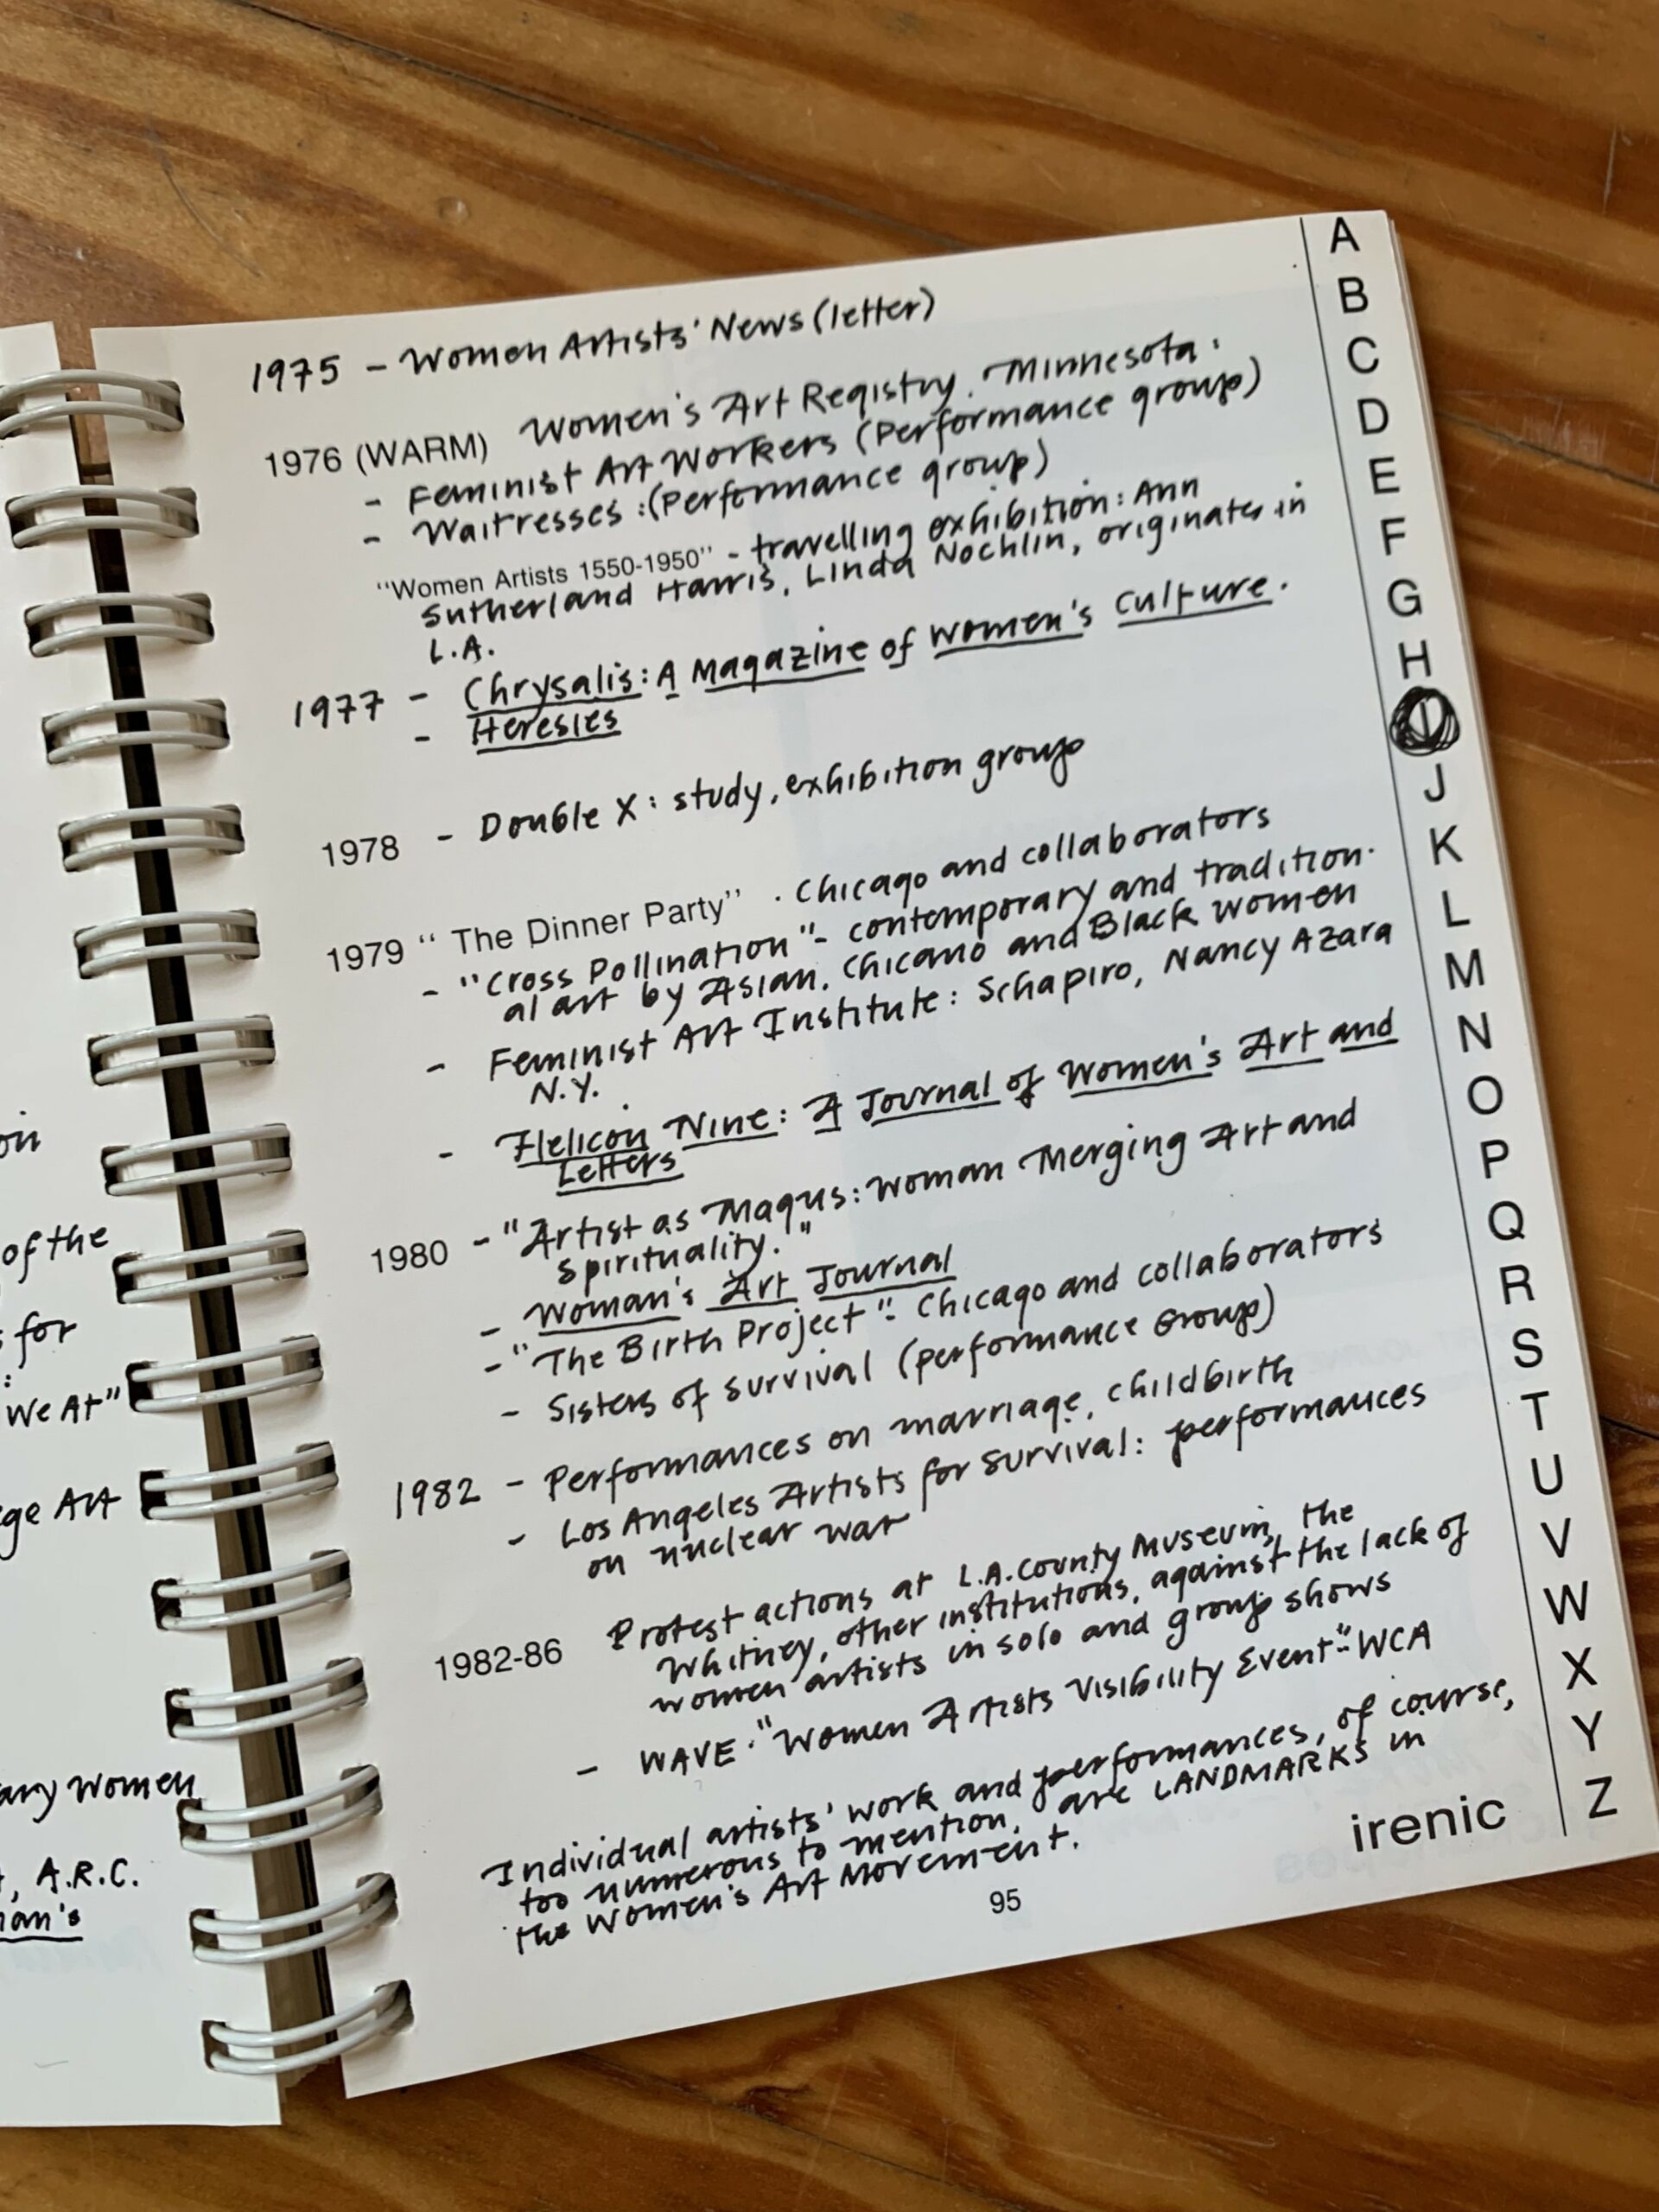 on
of the
for
:
We At"
ge Art
ary Women
, A.R.C.
an's
1975 - Women Artists' News (letter)
1976 (WARM) Women's Art Registry. Minnesota.
- Feminist Art Workers (Performance group)
- Waitresses: (Performance group)
"Women Artists 1550-1950" - travelling exhibition: Ann
Sutherland Harris, Linda Nochlin, originates in
L.A.
1977 - Chrysalis: A Magazine of Women's Culture.
- Heresies
1978 - Double X: study, exhibition group
1979 " The Dinner Party" . Chicago and collaborators
- "Cross Pollination" - contemporary and tradition-
al art by Asian, Chicano and Black women
- Feminist Art Institute: Schapiro, Nancy Azara
N.Y.
- Helicon Nine: A Journal of Women's Art and
Letters
1980 - "Artist as Magus: Woman Merging Art and
Spirituality."
- Woman's Art Journal
- "The Birth Project" - Chicago and collaborators
- Sisters of Survival (performance Group)
1982 - Performances on marriage, childbirth
- Los Angeles Artists for Survival: performances
on nuclear war
1982-86 Protest actions at L.A. County Museum, the
Whitney, other institutions, against the lack of
women artists in solo and group shows
- WAVE. "Women Artists Visibility Event" - WCA
Individual artists' work and performances, of course,
too numerous to mention, are LANDMARKS in
the Women's Art Movement.
95
irenic
A
B
C
D
E
F
G
H
I
J
K
L
M
N
O
P
Q
R
S
T
U
V
W
X
Y
Z